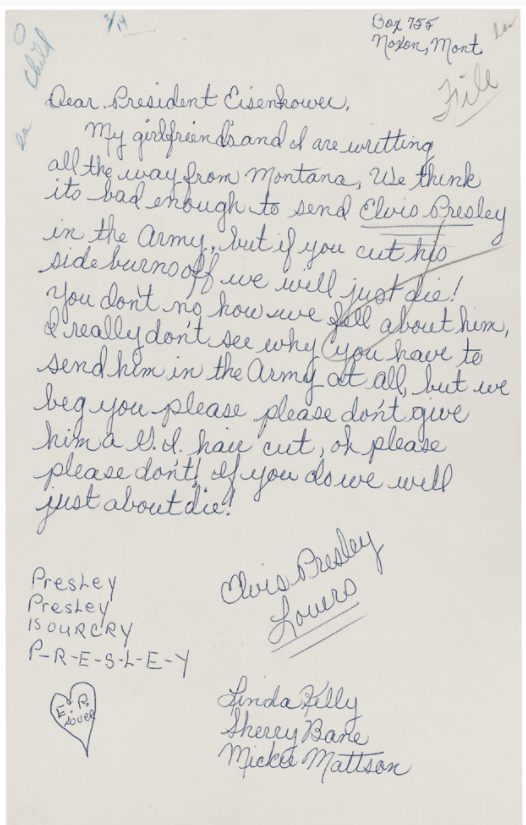 Child
3/19
Box 755
Noxon, Mont.
File
Dear President Eisenhower,
My girlfriend's and I are writting
all the way from Montana, We think
its bad enough to send Elvis Presley
in the Army, but if you cut his
side burns off we will just die!
You don't no how we fell about him,
I really don't see why you have to
send him in the Army at all, but we
beg you please please don't give
him a G.I. hair cut, oh please
please don't! If you do we will
just about die!
Elvis Presley
Lovers
Presley
Presley
IS OUR CRY
P-R-E-S-L-E-Y
E.P.
LOVER
Linda Kelly
Sherry Bane
Mickie Mattson